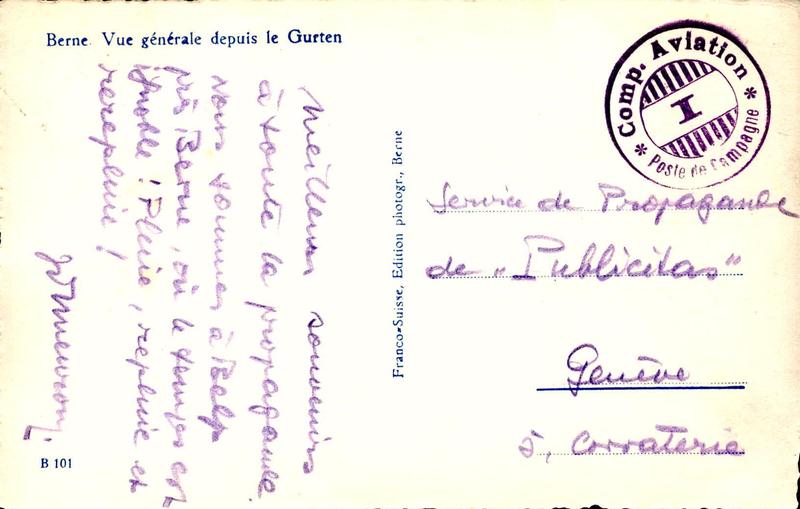 Berne. Vue générale depuis le Gurten
Meilleurs souvenirs
à toute la propagande
nous sommes à Belp
près Berne, où le temps est
ignoble! Pluie, repluie et
rerepluie!
B 101
Franco-Suisse, Edition photogr., Berne
Comp. Aviation
I
* Poste de Campagne *
Service de Propagande
de „Publicitas"
Genève
5, Corraterie